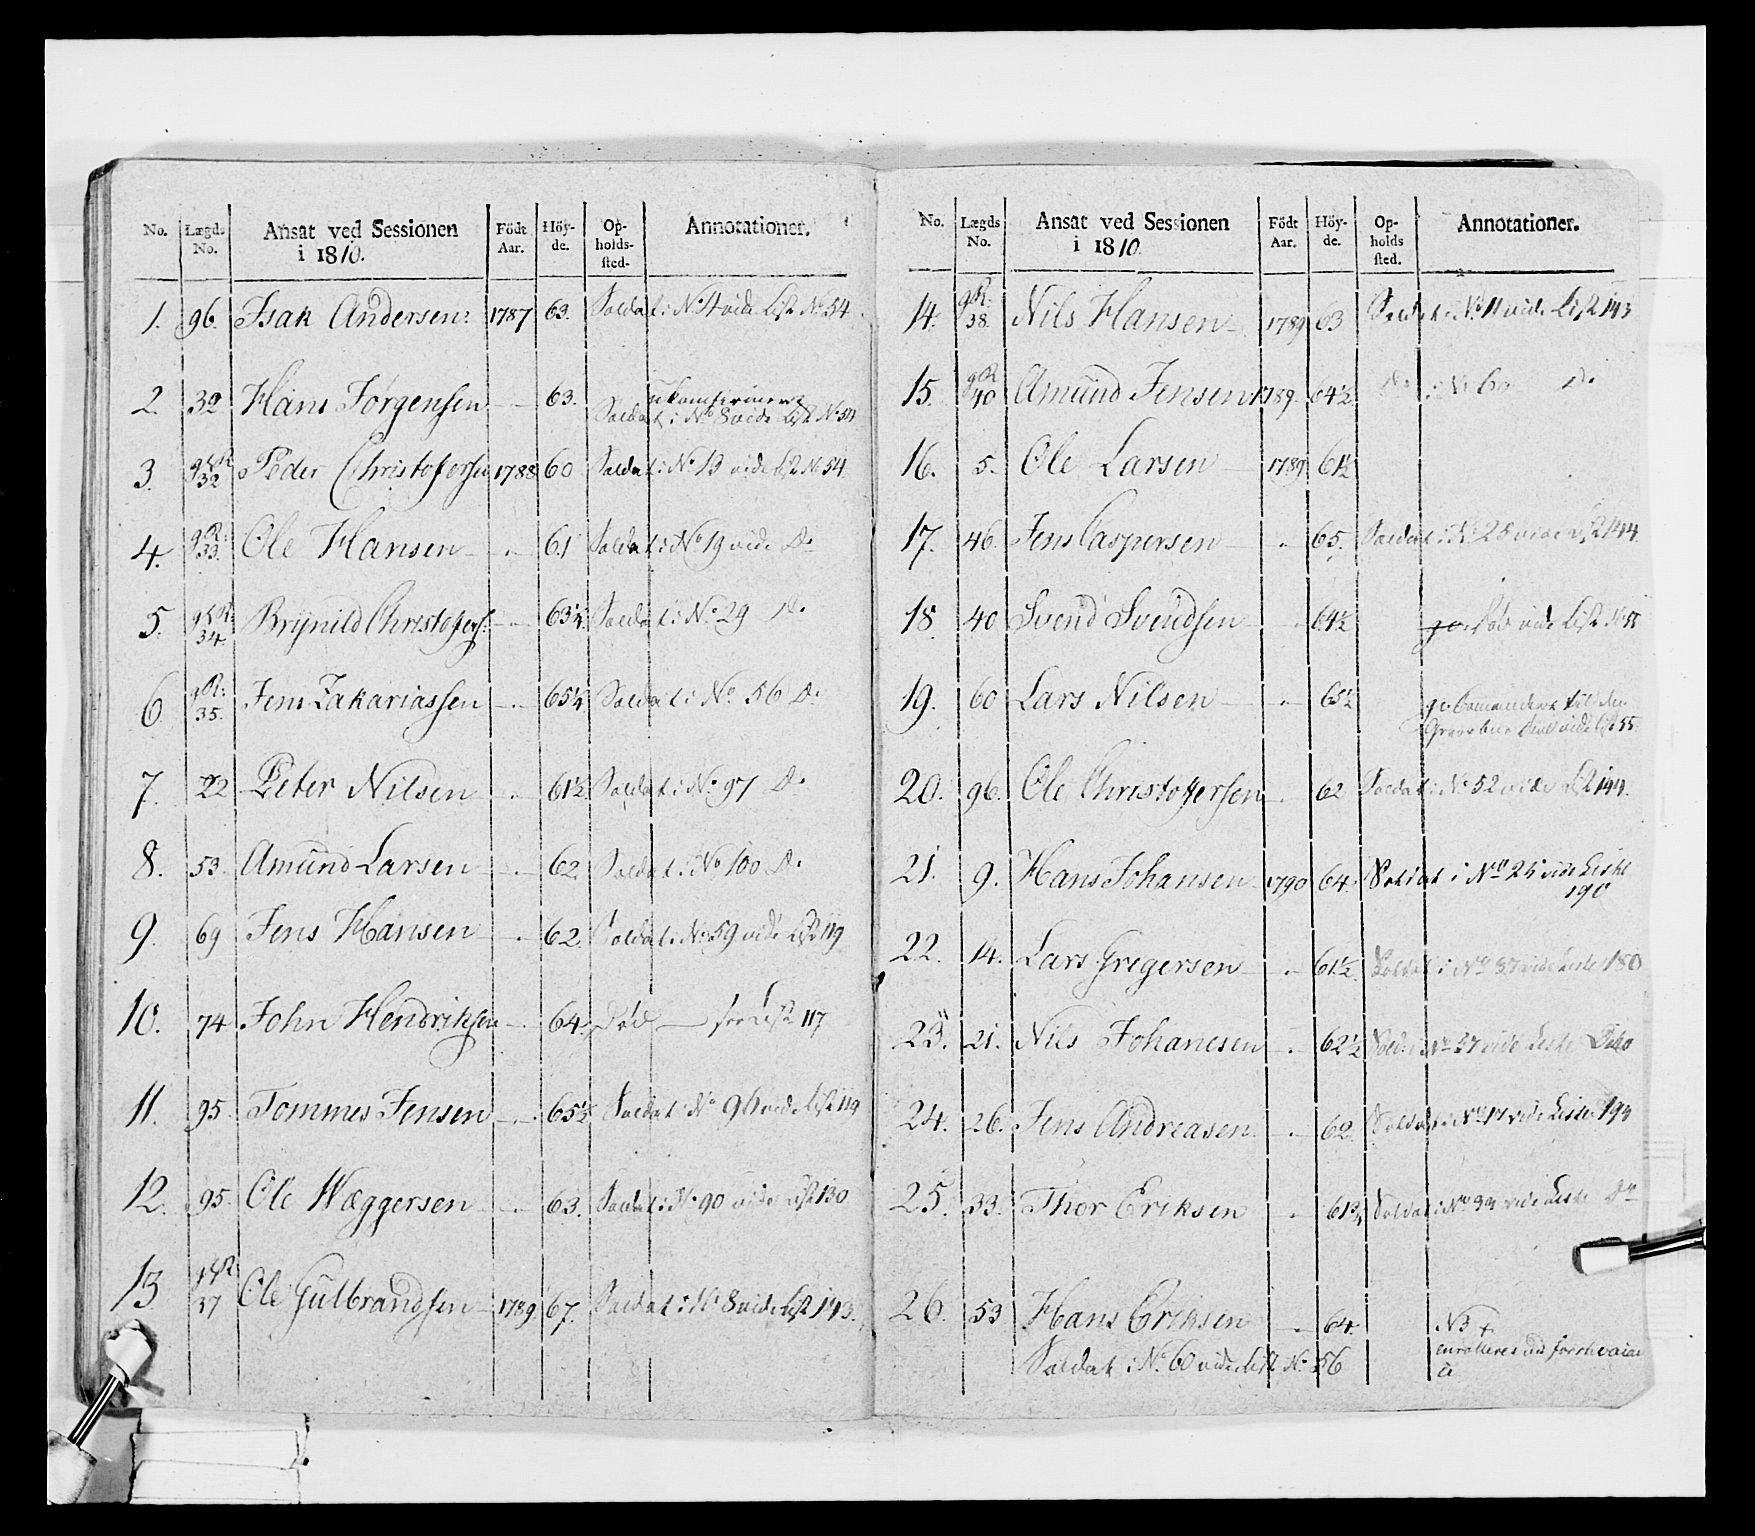 No. Lægds No. Ansat ved Sessionen i 1810. Födt Aar. Höy-de. Op-holds-sted. Annotationer.
1. 96. Isak Andersen: 1787 63. Soldat i No 4 vide List No 54
2. 32 Hans Jørgensen — 63.
Soldat i No 8 vide List No 54
3. 32 Peder Christofersen 1788 60 Soldat i No 13 vide List No 54
4. 33. Ole Hansen — 61 Soldat i No 19 vide Do
5. 34. Brynild Christofers: — 63¼ Soldat i No 29 Do
6 35. Jens Zakariassen — 65¼ Soldat i No 56 Do
7. 22 Peter Nilsen — 61½ Soldat i No 97 Do
8. 53. Amund Larsen — 62 Soldat i No 100 Do
9. 69 Jens Hansen — 62. Soldat i No 59 vide List 119
10. 74 John Hendriksen — 64. Död — see List 117
11. 95. Tommes Jensen — 65½ Soldat i No 96 vide List 119
12. 95. Ole Wæggersen — 63. Soldat i No 90 vide List 130
13 37 Ole Gulbrandsen 1789 67. Soldat i No 8 vide List 143.
No. Lægds No. Ansat ved Sessionen i 1810. Födt Aar. Höy-de. Op-holds sted. Annotationer.
14. 38. Nils Hansen 1789 63 Soldat i No 11 vide List 143
15. 40 Amund Jensen 1789 64½ Do i No 60 Do
16. 5. Ole Larsen 1789 61½
17. 46. Jens Caspersen — 65. Soldat i No 28 vide List 144.
18. 40 Svend Svendsen — 64½ Död vide List No 55
19. 60 Lars Nilsen — 65½ til den
vide List 55
20. 96. Ole Christoffersen — 62 Soldat i No 52 vide List 144.
21. 9. Hans Johansen 1790 64 Soldat i No 25 vide Liste
190
22. 14. Lars Gregersen — 61½ Soldat i No 37 vide Liste 180
23. 21. Nils Johanesen — 62½ Sold: i No 57 vide Liste Dito
24. 26. Jens Andreasen — 62. Soldat i No 17 vide Liste 194
25. 33. Thor Eriksen — 61¾ Soldat i No 34 vide Liste Do
26. 53 Hans Eriksen — 64. NB +
Soldat i No 60 vide List No 56